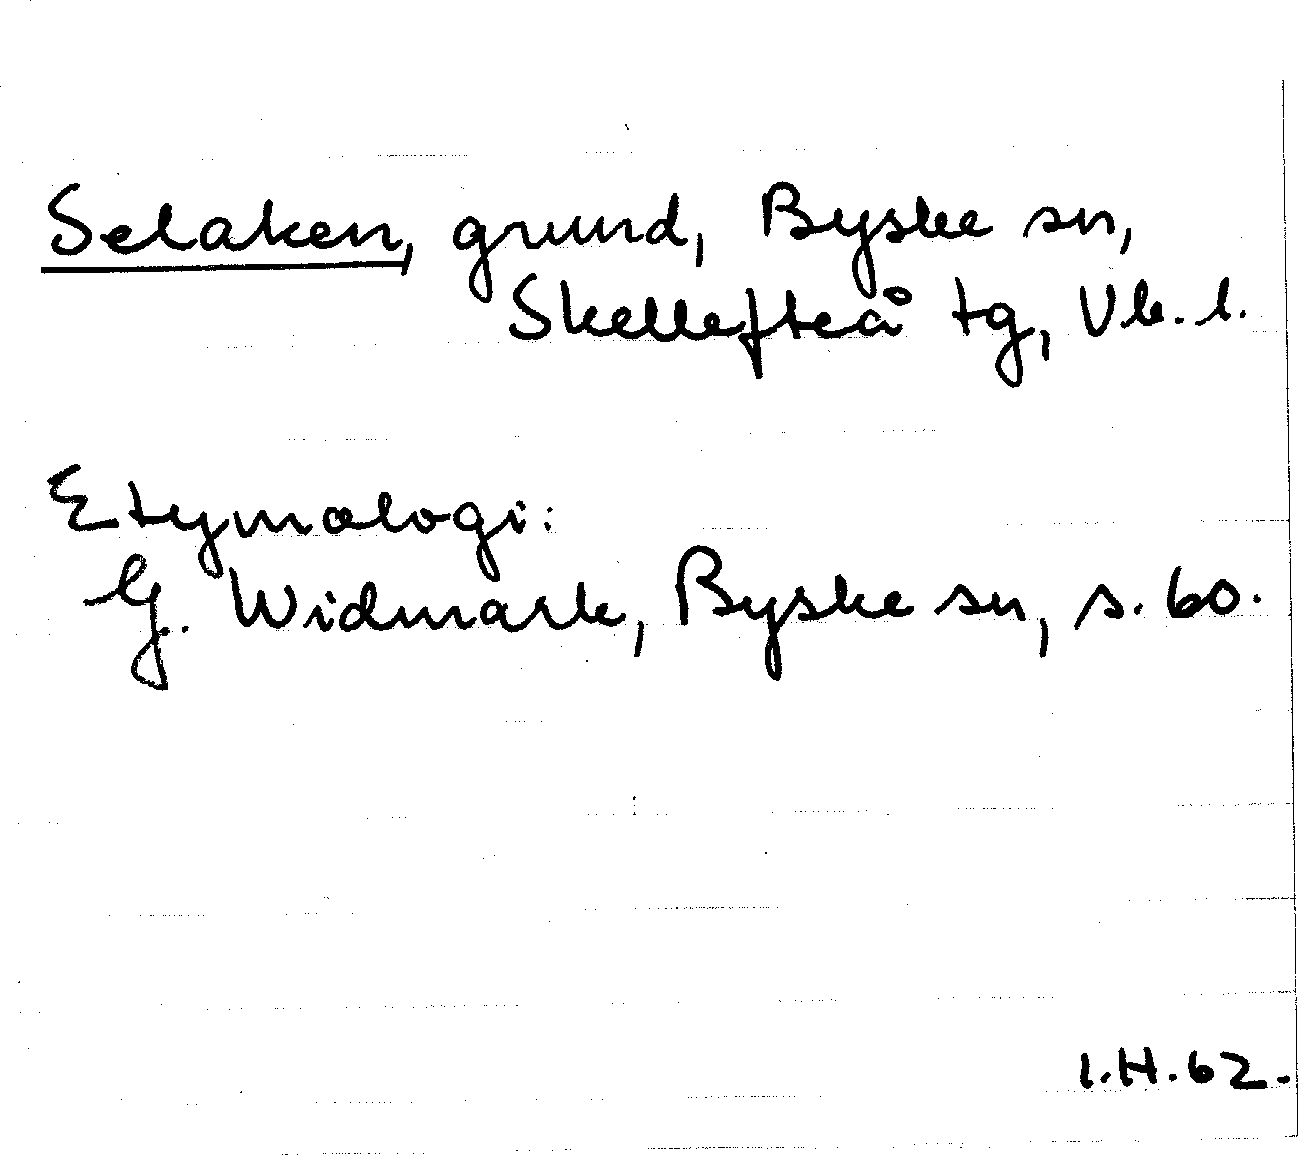 Selaken, grund, Byske sn,
Skellefteå tg, Vb. l.
Etymologi:
G. Widmark, Byske sn, s. 60.
I.H.62.